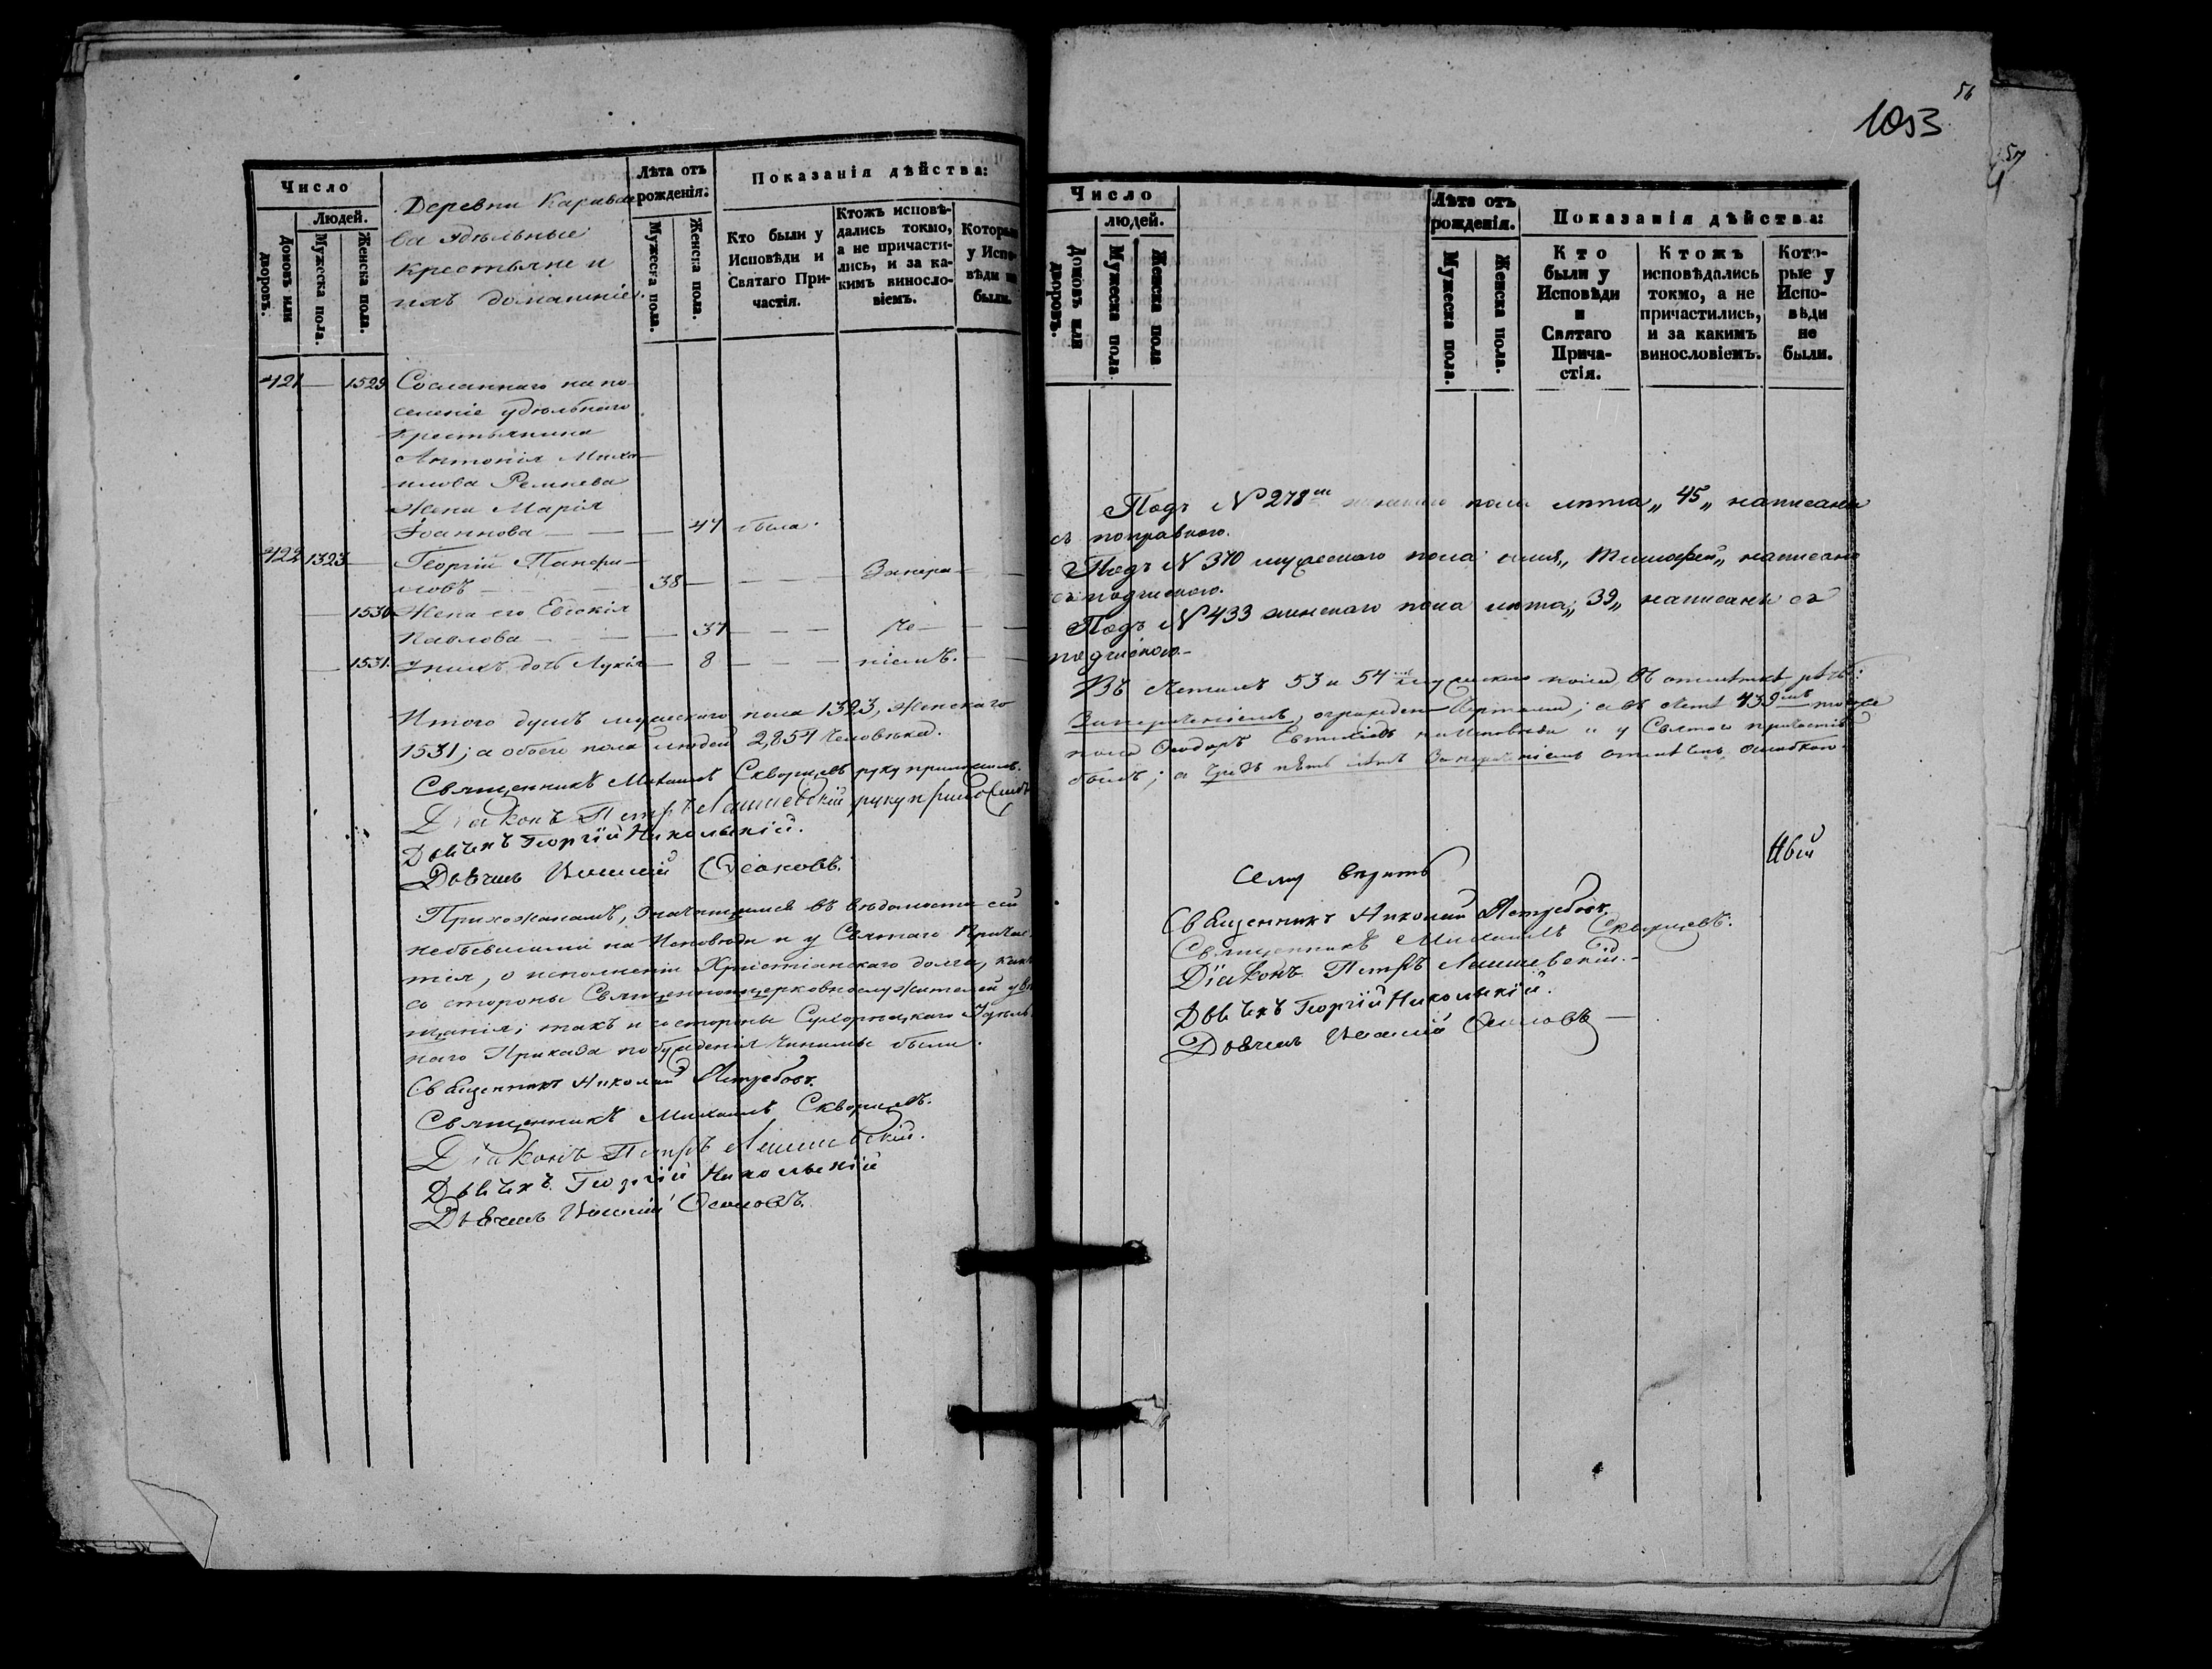 Число
Людей.
Домовъ или дворовъ.
Мужеска пола.
Женска пола.
Деревни Карива
ва удѣльные
крестьяне и
ихъ домашніе.
Лѣта отъ
рожденія.
Мужеска пола.
Женска пола.
Показанія дѣйства:
Кто были у
Исповѣди и
Святаго При-
частія.
Ктожъ исповѣ-
дались токмо,
а не причасти-
лись, и за ка-
кимъ винословіемъ.
Которые
у Испо-
вѣди не
были.
421 — 1529 Сосланнаго на по-
селеніе удѣльнаго
крестьянина
Антонія Миха-
илова
жена Марія
Іоаннова — — — 47 была.
422 1323 — Георгій Панфи-
ловъ — 38 — — — Запера- —
— 1530 Жена его Евдокія
Павлова — — — 37 — — — че- — —
— 1531. У нихъ дочь Лукія — 8 — — — ніемъ. — —
Итого душъ мужескаго пола 1323, женскаго
1531; а обоего пола людей 2,854 человѣка.
Священникъ Михаилъ Скворцевъ руку приложилъ.
Діаконъ Петръ руку приложилъ
Дьячекъ Георгій Никольскій.
Дьячекъ Василій Осиповъ.
Прихожанамъ, значущимся въ вѣдомости сей
небывшими на Исповѣди и у Святаго Причас-
тія, о исполненіи Христіанскаго долга, какъ
со стороны Священноцерковнослужителей увѣ-
щанія; такъ и со стороны Удѣль-
наго Приказа побужденія чинимы были.
Священникъ Николай Ястребовъ.
Священникъ Михаилъ Скворцевъ.
Діаконъ Петръ
Дьячекъ Георгій Никольскій
Дьячекъ Василій Осиповъ.
56
1053
57
Число
людей.
Домовъ или дворовъ.
Мужеска пола.
Женска пола
Лѣта отъ
рожденія.
Мужеска пола.
Женска пола.
Показанія дѣйства:
Кто
были у
Исповѣди
и
Святаго
Прича-
стія.
Ктожъ
исповѣдались
токмо, а не
причастились,
и за какимъ
винословіемъ.
Кото-
рые у
Испо-
вѣди
не
были.
Подъ № 278 пола лѣта „45„ написаны
съ поправкою.
Подъ № 370 мужескаго пола имя „Тимофей„ написано
съ подчискою.
Подъ № 433 женскаго пола лѣта „39„ написаны съ
подчискою.
Въ 53 и 54 мужескаго пола въ отмѣткѣ рѣчь:
; а въ 439мъ
пола Ѳеодоръ на Исповѣди и у Святаго причастія
былъ; а отмѣченъ ошибкою.
Сему вѣрить
Священникъ Николай Ястребовъ.
Священникъ Михаилъ Скворцевъ.
Діаконъ Петръ
Дьячекъ Георгій Никольскій.
Дьячекъ Василій Осиповъ